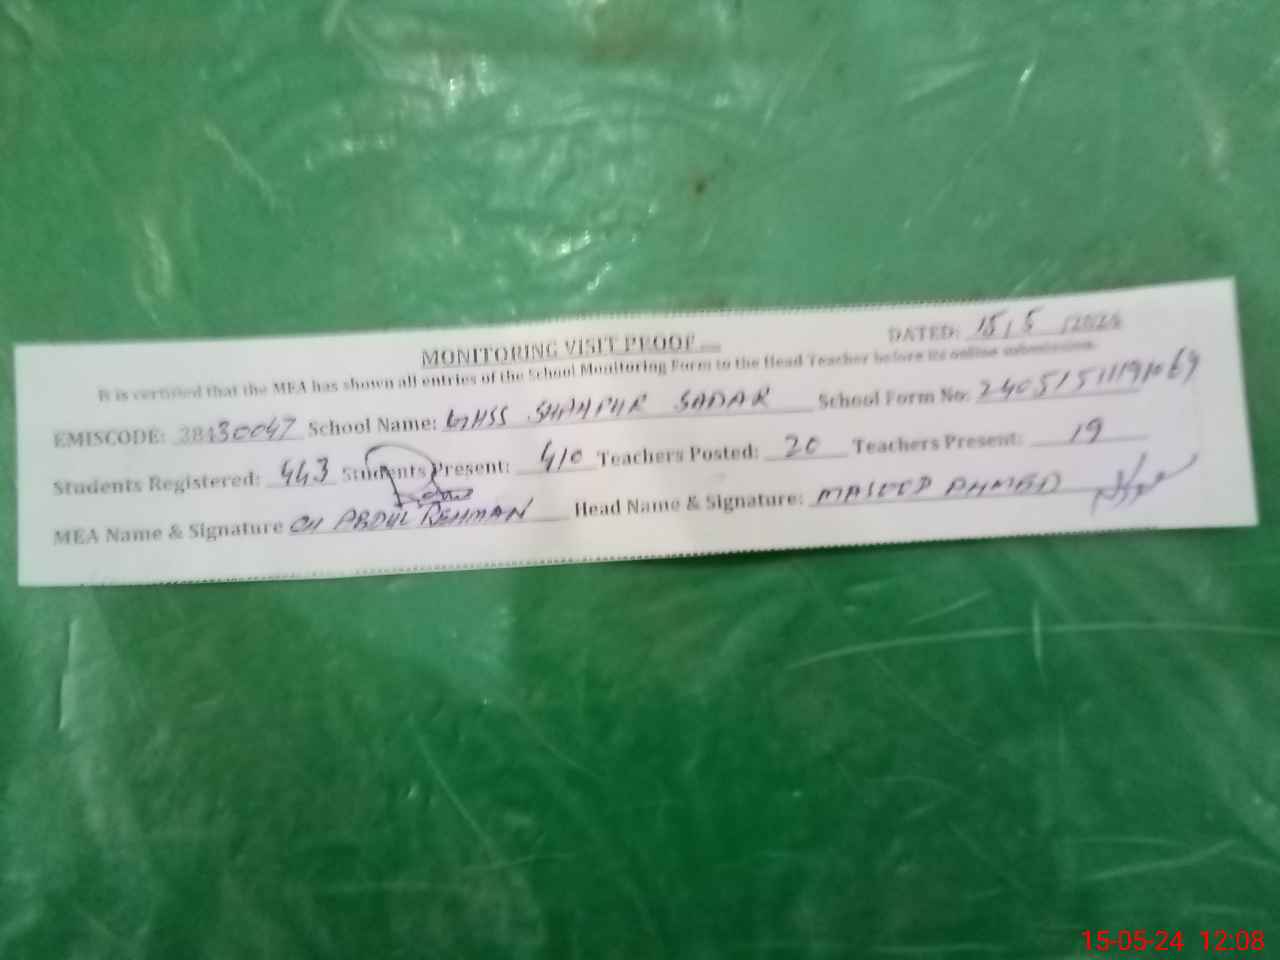 MONITORING VISIT PROOF DATED: 15/5/2024
It is certified that the MEA has shown all entries of the School Monitoring Form to the Head Teacher before its online submission.
EMISCODE: 38430047 School Name: GHSS SHAHPUR SADAR School Form No:
Students Registered: 443 Students Present: 410 Teachers Posted: 20 Teachers Present: 19
MEA Name & Signature CH ABDUL REHMAN Head Name & Signature: MASOOD AHMED
15-05-24 12:08